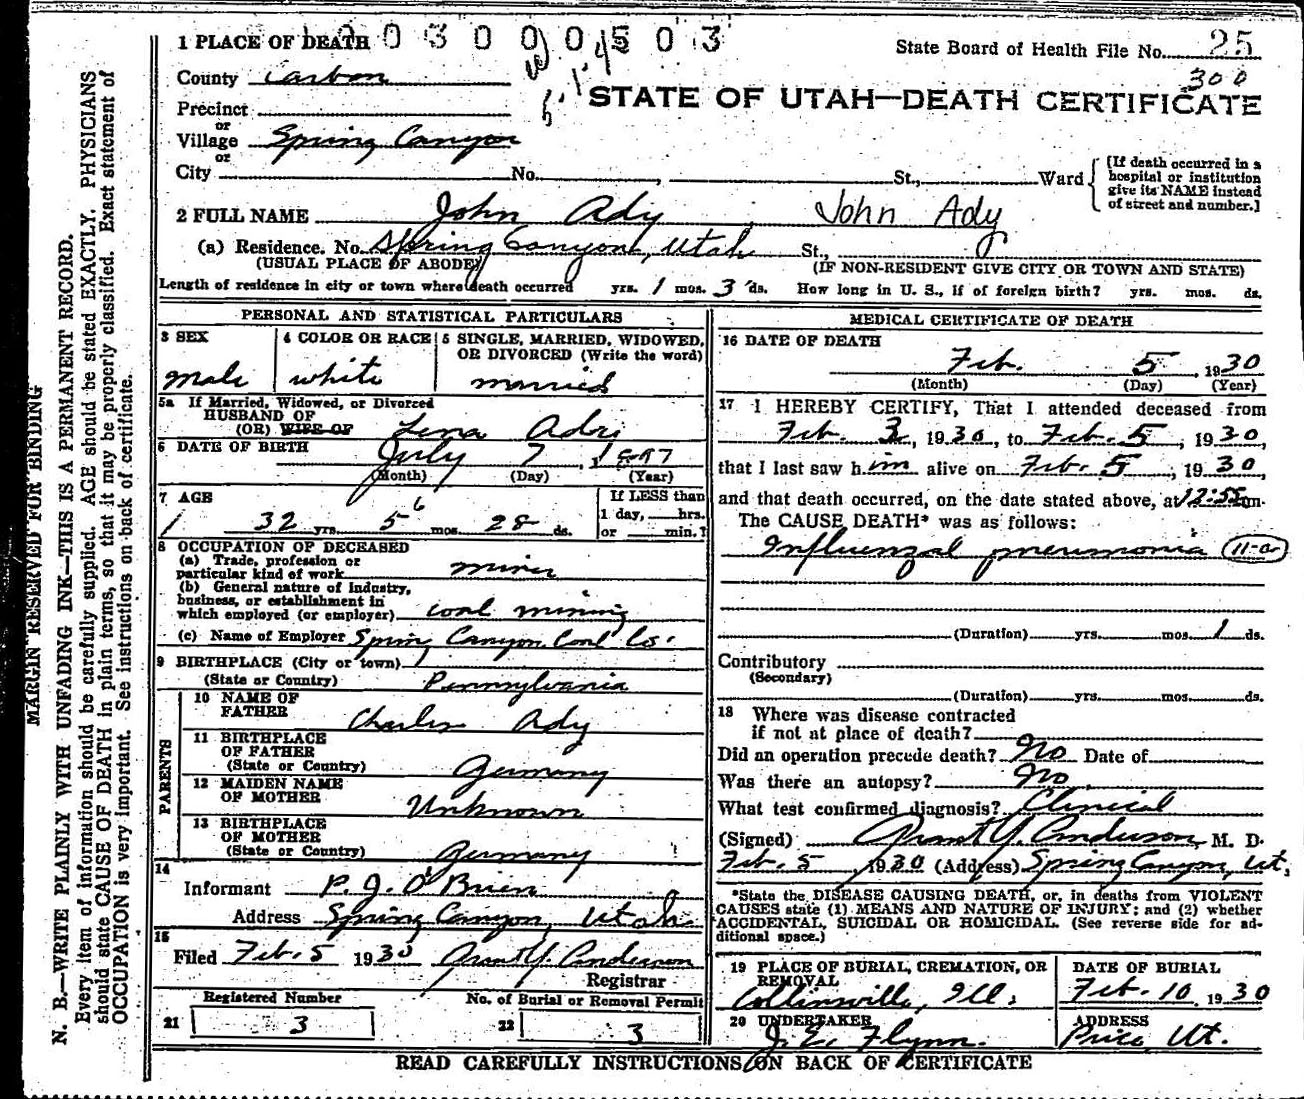 1 PLACE OF DEATH 0 3 0 0 0 5 0 3
State Board of Health File No. 25
300
County Carbon
STATE OF UTAH—DEATH CERTIFICATE
Precinct
or
Village Spring Canyon
or
City No. , St., Ward
[If death occurred in a hospital or institution give its NAME instead of street and number.]
2 FULL NAME John Ady John Ady
(a) Residence. No. Spring Canyon, Utah St.,
(USUAL PLACE OF ABODE) (IF NON-RESIDENT GIVE CITY OR TOWN AND STATE)
Length of residence in city or town where death occurred yrs. 1 mos. 3 ds. How long in U. S., if of foreign birth? yrs. mos. ds.
PERSONAL AND STATISTICAL PARTICULARS
3 SEX
Male
4 COLOR OR RACE
white
5 SINGLE, MARRIED, WIDOWED, OR DIVORCED (Write the word)
married
5a If Married, Widowed, or Divorced
HUSBAND OF
(OR) WIFE OF Lena Ady
6 DATE OF BIRTH July 7, 1897
(Month) (Day) (Year)
7 AGE
32 yrs. 5 6 mos. 28 ds.
If LESS than
1 day, hrs.
or min.?
8 OCCUPATION OF DECEASED
(a) Trade, profession or
particular kind of work miner
(b) General nature of industry,
business, or establishment in
which employed (or employer) coal mining
(c) Name of Employer Spring Canyon Coal Co.
9 BIRTHPLACE (City or town)
(State or Country) Pennsylvania
PARENTS
10 NAME OF
FATHER Charles Ady
11 BIRTHPLACE
OF FATHER
(State or Country) Germany
12 MAIDEN NAME
OF MOTHER Unknown
13 BIRTHPLACE
OF MOTHER
(State or Country) Germany
14
Informant P. J. O'Brien
Address Spring Canyon, Utah
15
Filed Feb. 5 1930 Grant Y. Anderson
Registrar
Registered Number
21 3
No. of Burial or Removal Permit
22 3
MEDICAL CERTIFICATE OF DEATH
16 DATE OF DEATH
Feb. 5 1930
(Month) (Day) (Year)
17 I HEREBY CERTIFY, That I attended deceased from
Feb. 3, 1930, to Feb. 5, 1930,
that I last saw him alive on Feb. 5, 1930,
and that death occurred, on the date stated above, at 12:55 m.
The CAUSE DEATH* was as follows:
Influenzal pneumonia 11-a
(Duration) yrs. mos. 1 ds.
Contributory
(Secondary)
(Duration) yrs. mos. ds.
18 Where was disease contracted
if not at place of death?
Did an operation precede death? No Date of
Was there an autopsy? No
What test confirmed diagnosis? Clinical
(Signed) Grant Y. Anderson, M. D.
Feb. 5 1930 (Address) Spring Canyon, Ut.
*State the DISEASE CAUSING DEATH, or, in deaths from VIOLENT
CAUSES state (1) MEANS AND NATURE OF INJURY; and (2) whether
ACCIDENTAL, SUICIDAL OR HOMICIDAL. (See reverse side for ad-
ditional space.)
19 PLACE OF BURIAL, CREMATION, OR
REMOVAL
Collinsville, Ill.
DATE OF BURIAL
Feb. 10, 1930
20 UNDERTAKER
J. E. Flynn.
ADDRESS
Price, Ut.
READ CAREFULLY INSTRUCTIONS ON BACK OF CERTIFICATE
MARGIN RESERVED FOR BINDING
N. B.—WRITE PLAINLY WITH UNFADING INK—THIS IS A PERMANENT RECORD.
Every item of information should be carefully supplied. AGE should be stated EXACTLY. PHYSICIANS
should state CAUSE OF DEATH in plain terms, so that it may be properly classified. Exact statement of
OCCUPATION is very important. See instructions on back of certificate.